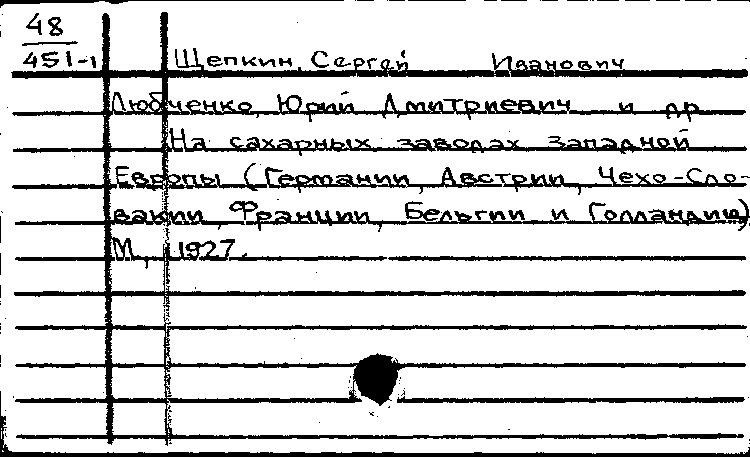 48
451-1
Щепкин, Сергей Иванович
Любченко, Юрий Дмитриевич и др.
На сахарных заводах Западной
Европы (Германии, Австрии, Чехо-Сло-
вакии, Франции, Бельгии и Голландии)
М., 1927.